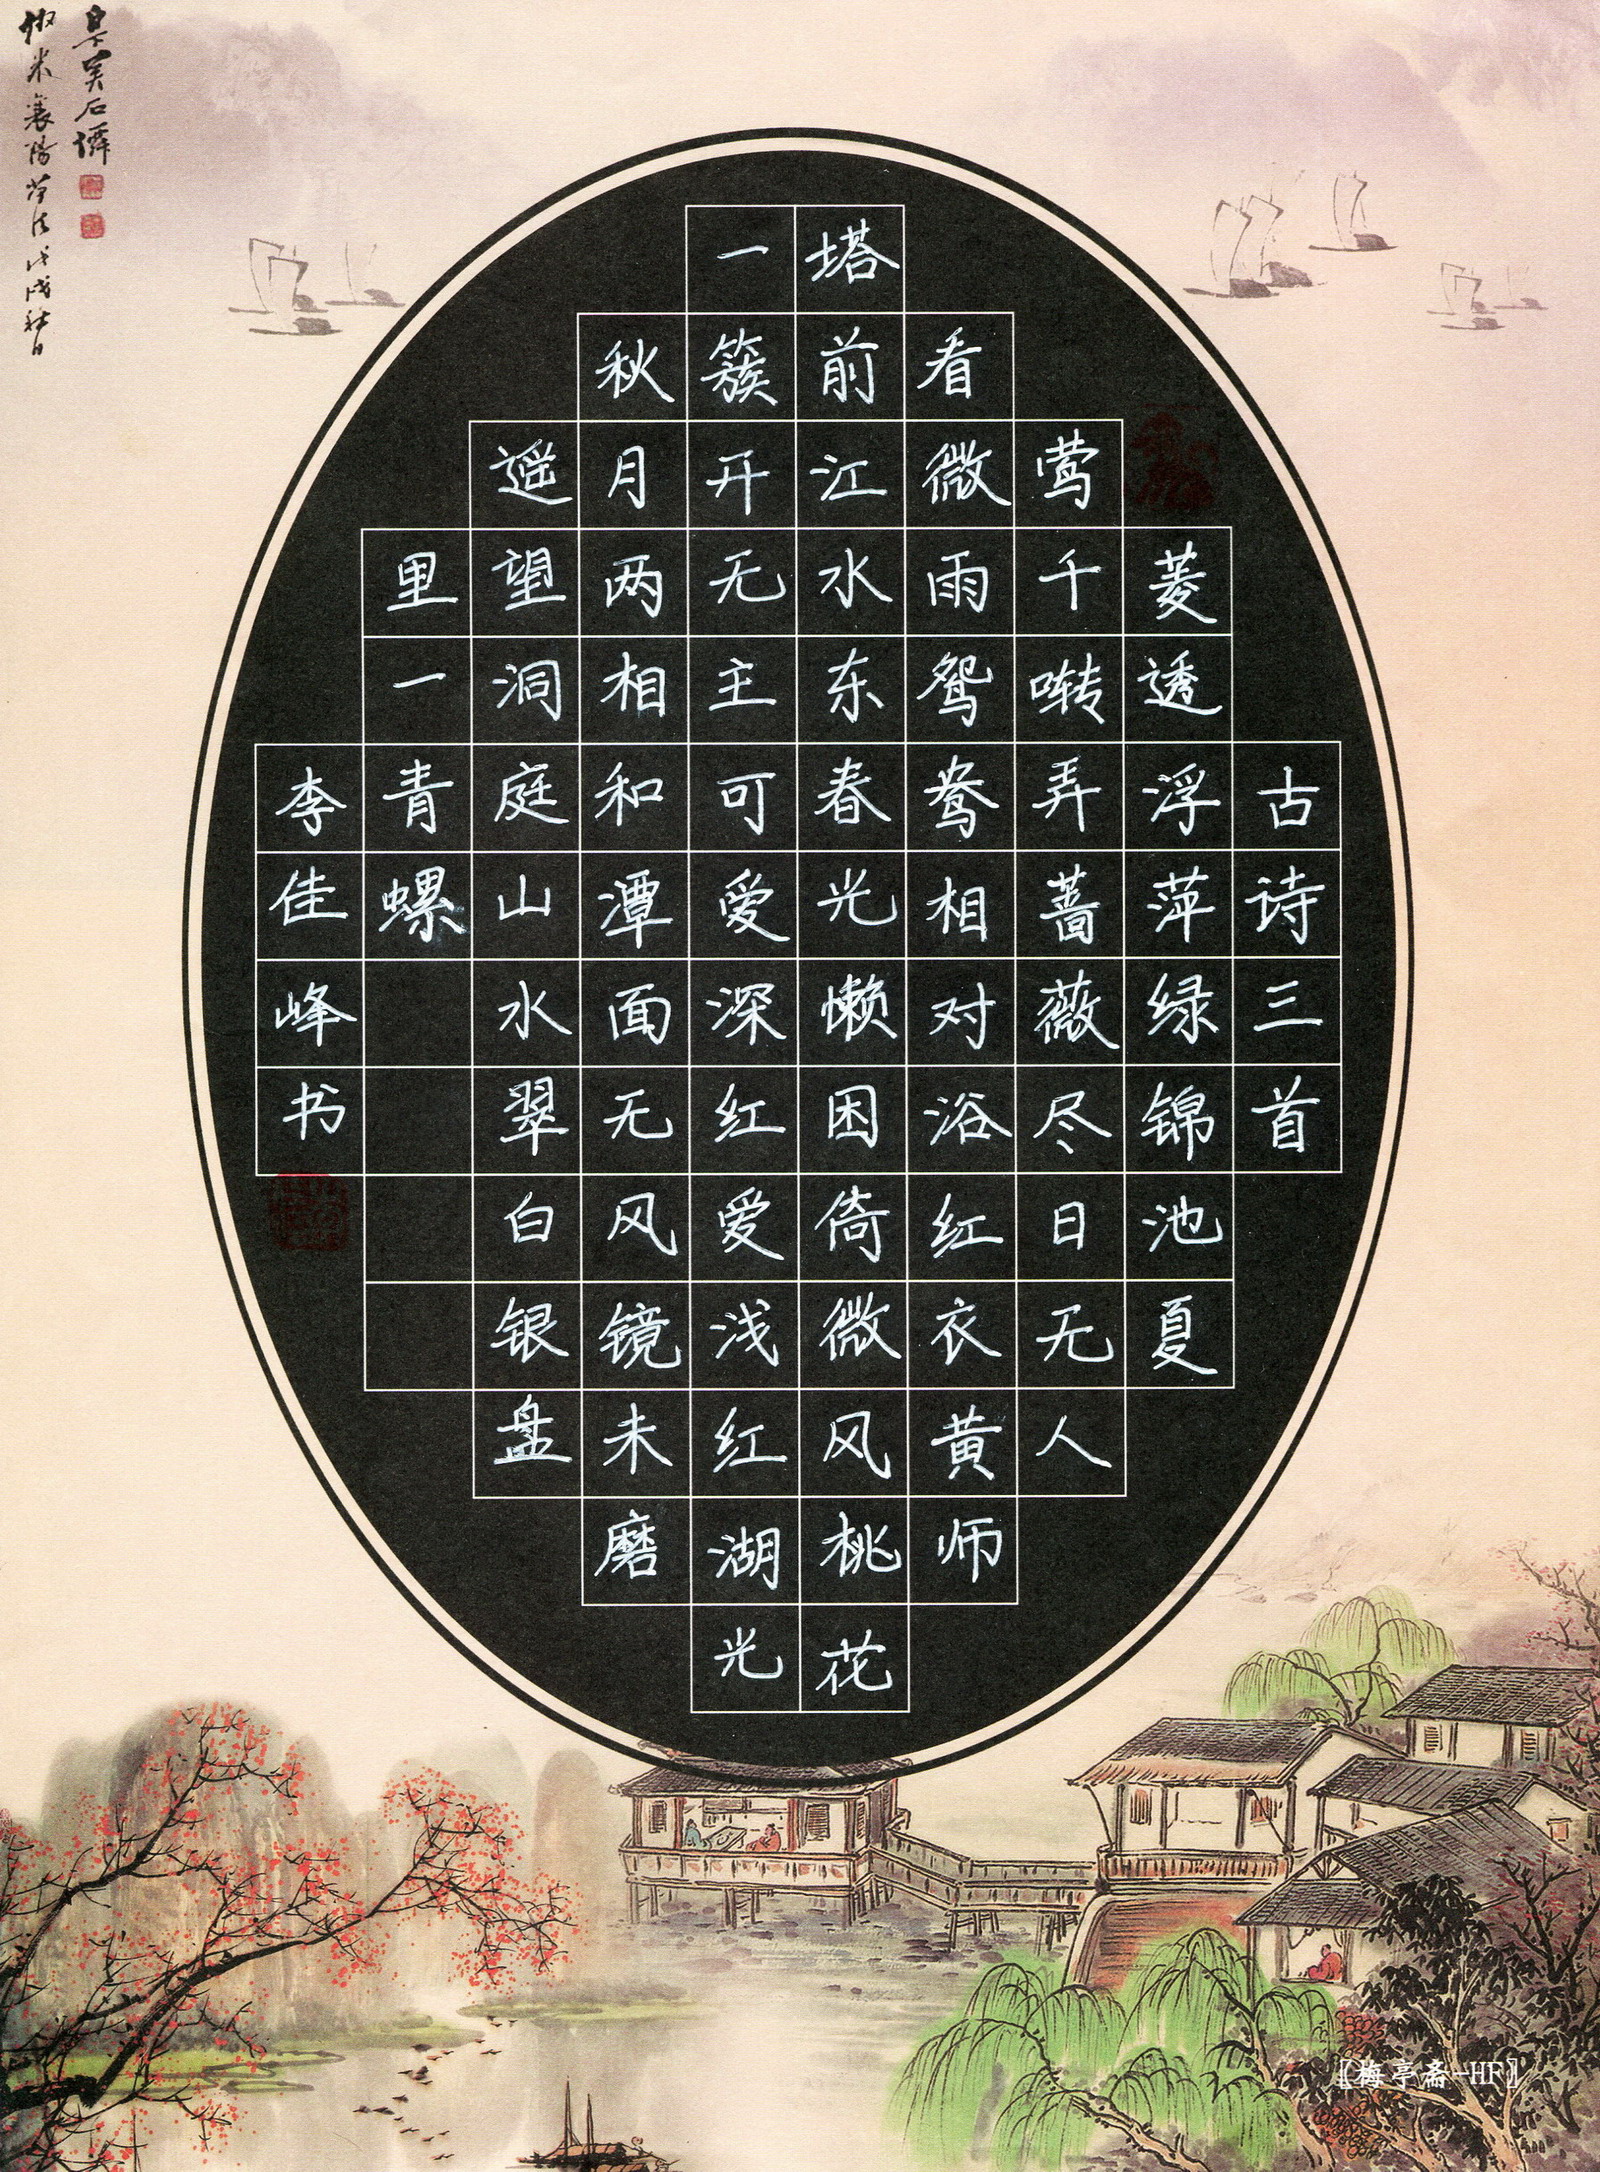 古诗三首
菱透浮萍绿锦池夏
莺千啭弄蔷薇尽日无人
看微雨鸳鸯相对浴红衣黄师
塔前江水东春光懒困倚微风桃花
一簇开无主可爱深红爱浅红湖光
秋月两相和潭面无风镜未磨
遥望洞庭山水翠白银盘
里一青螺
李佳峰书
〖梅亭斋-HF〗